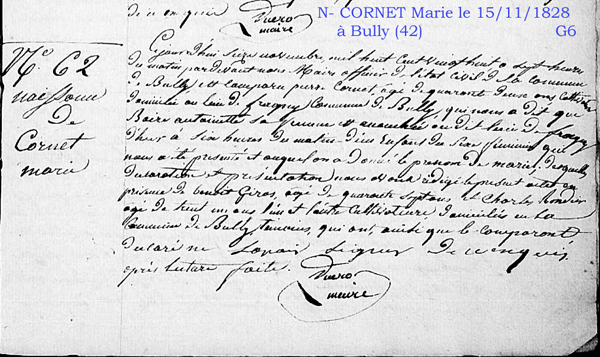 de ce enquis
Duero
maire
N- CORNET Marie le 15/11/1828
à Bully (42) G6
N° 62
naissance
De
Cornet
marie
Cejourd'hui seize novembre mil huit cent vingt huit a sept heures
du matin par devant nous Maire officier de l'etat civil de la commune
de Bully est comparu pierre Cornet, agé de quarante deux ans Cultivateur
domicilié au lieu de Commune de Bully, qui nous a dit que
antoinette Sa femme est accouchée au dit lieu de
d'hier à Six heures du matin d'un Enfant du Sexe feminin que
nous a été presenté et auquel on a donné le prenom de marie. desquelles
declaration et présentation nous avons redigé le present acte en
presence de benoit Giros, agé de quarante Sept ans et Charles
agé de trente un ans l'un et l'autre Cultivateurs, domiciliés en la
Commune de Bully temoins, qui ont, ainsi que le Comparant
declaré ne Savoir Signer De ce enquis
après lecture faite.
Duero
maire